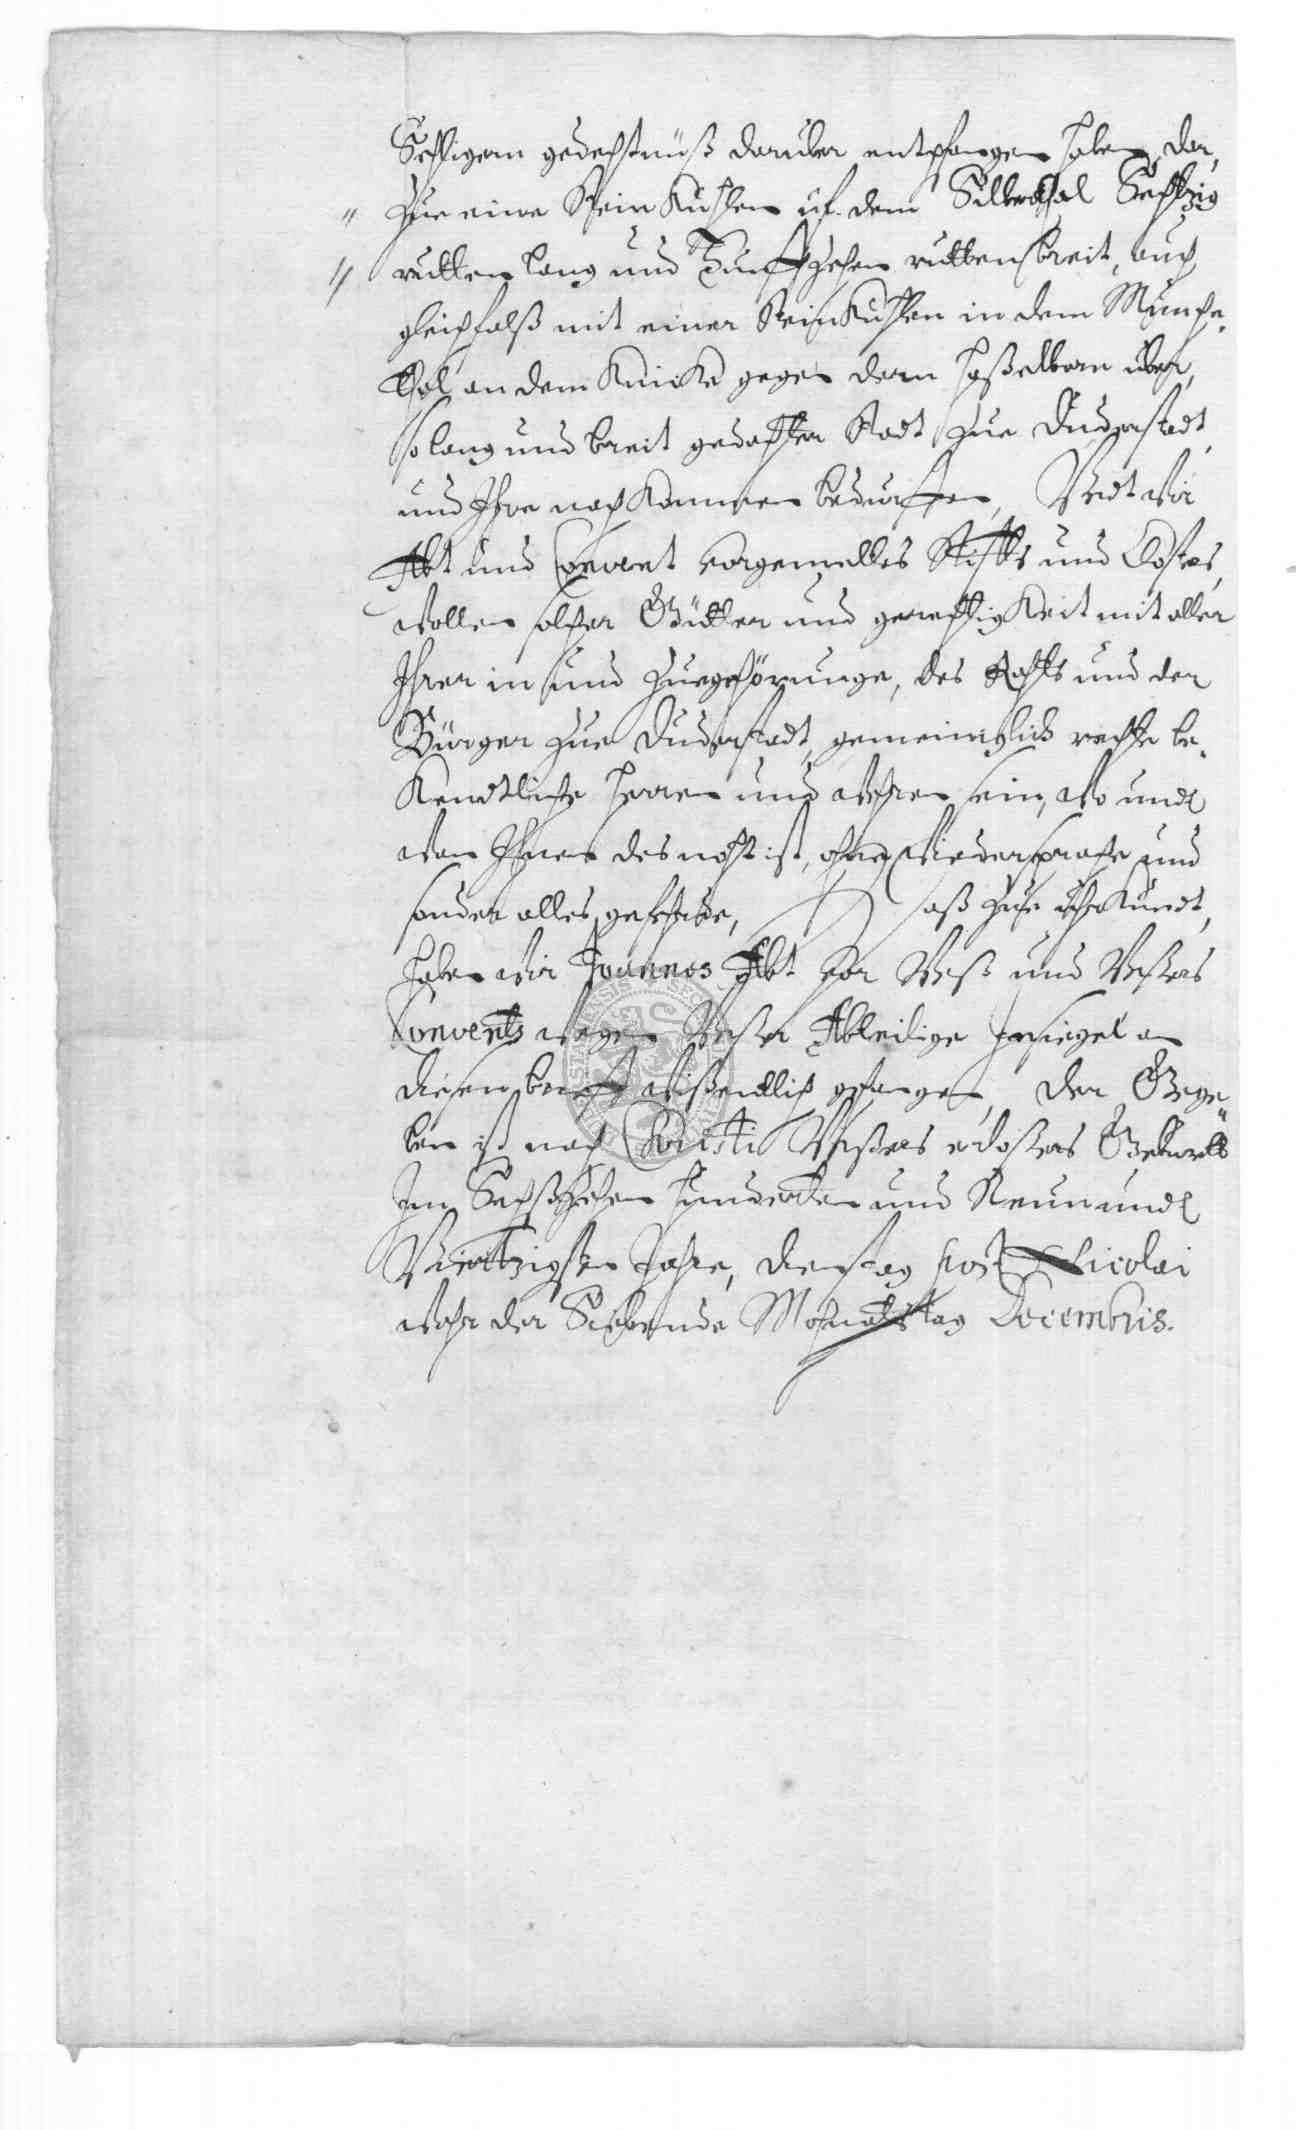 Seehligem gedechtnuß daruber entpfangen haben, dar,
" Zue eine Steinkuhlen uf dem Sillberthal Sechtzig
// rutten lang und Funffzehen rutten breit, auch
gleichfalß mit einer Steinkuhlen in dem Münche,
thal an dem Knicke gegen dem Haßelborn über,
so lang und breit gedachter Stadt Zue Duderstadt,
und Ihre nachkommen bedurffen, Undt wir
Abt und Convent vorgemelltes Stiffts und Closters,
wollen solcher Gütter und gerechtigkeit mit aller
Ihrer in und Zuegehörunge, des Rahts und der
Bürger Zue Duderstadt, gemeinglich rechte be,
kendtliche Herren und wehren sein, wo undt
wan Ihnen des noht ist, ohne Wiedersprache und
sonder alles gefehrde, Daß Zue uhrkundt,
haben wir Joannes Abt vor Unß und Unsers
Convents wegen Unser Abteilige Insiegel an
diesen brieff wißendtlich gehangen, Der Gege,
ben ist nach Christi Unsers erlösers Gebuhrt
Im Sechßzehen Hunderten und Neun undt
Viertzigsten Jahre, dienstag post Nicolai
wahr der Siebende Mohnatstag Decembris.